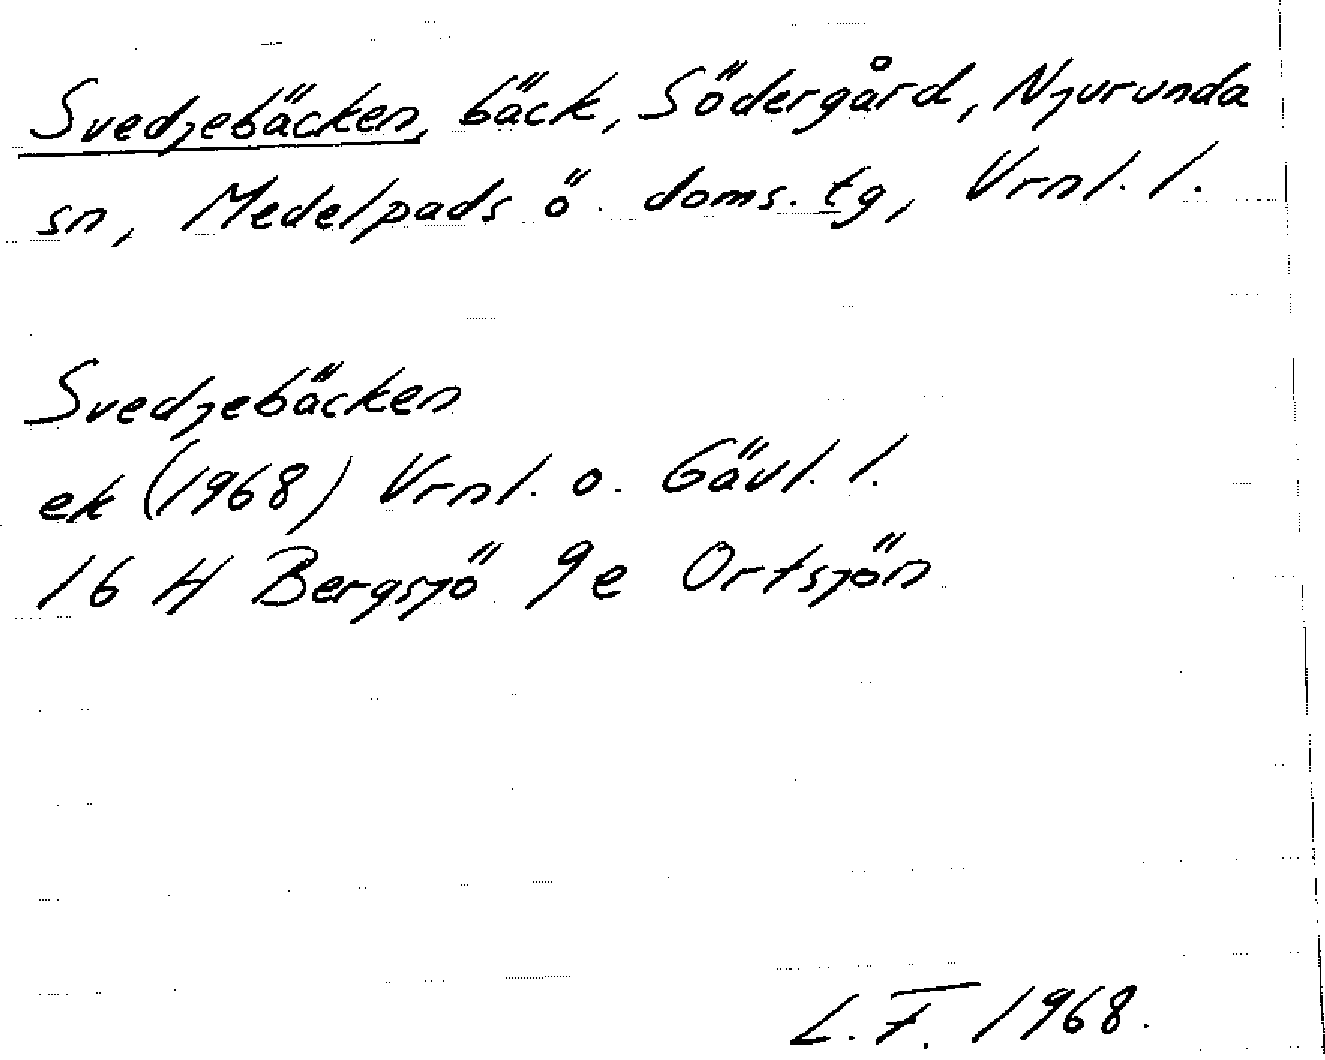 Svedjebäcken, bäck, Södergård, Njurunda
sn, Medelpads ö. doms. tg, Vrnl. l.
Svedjebäcken
ek (1968) Vrnl. o. Gävl. l.
16 H Bergsjö 9e Ortsjön
L. F. 1968.